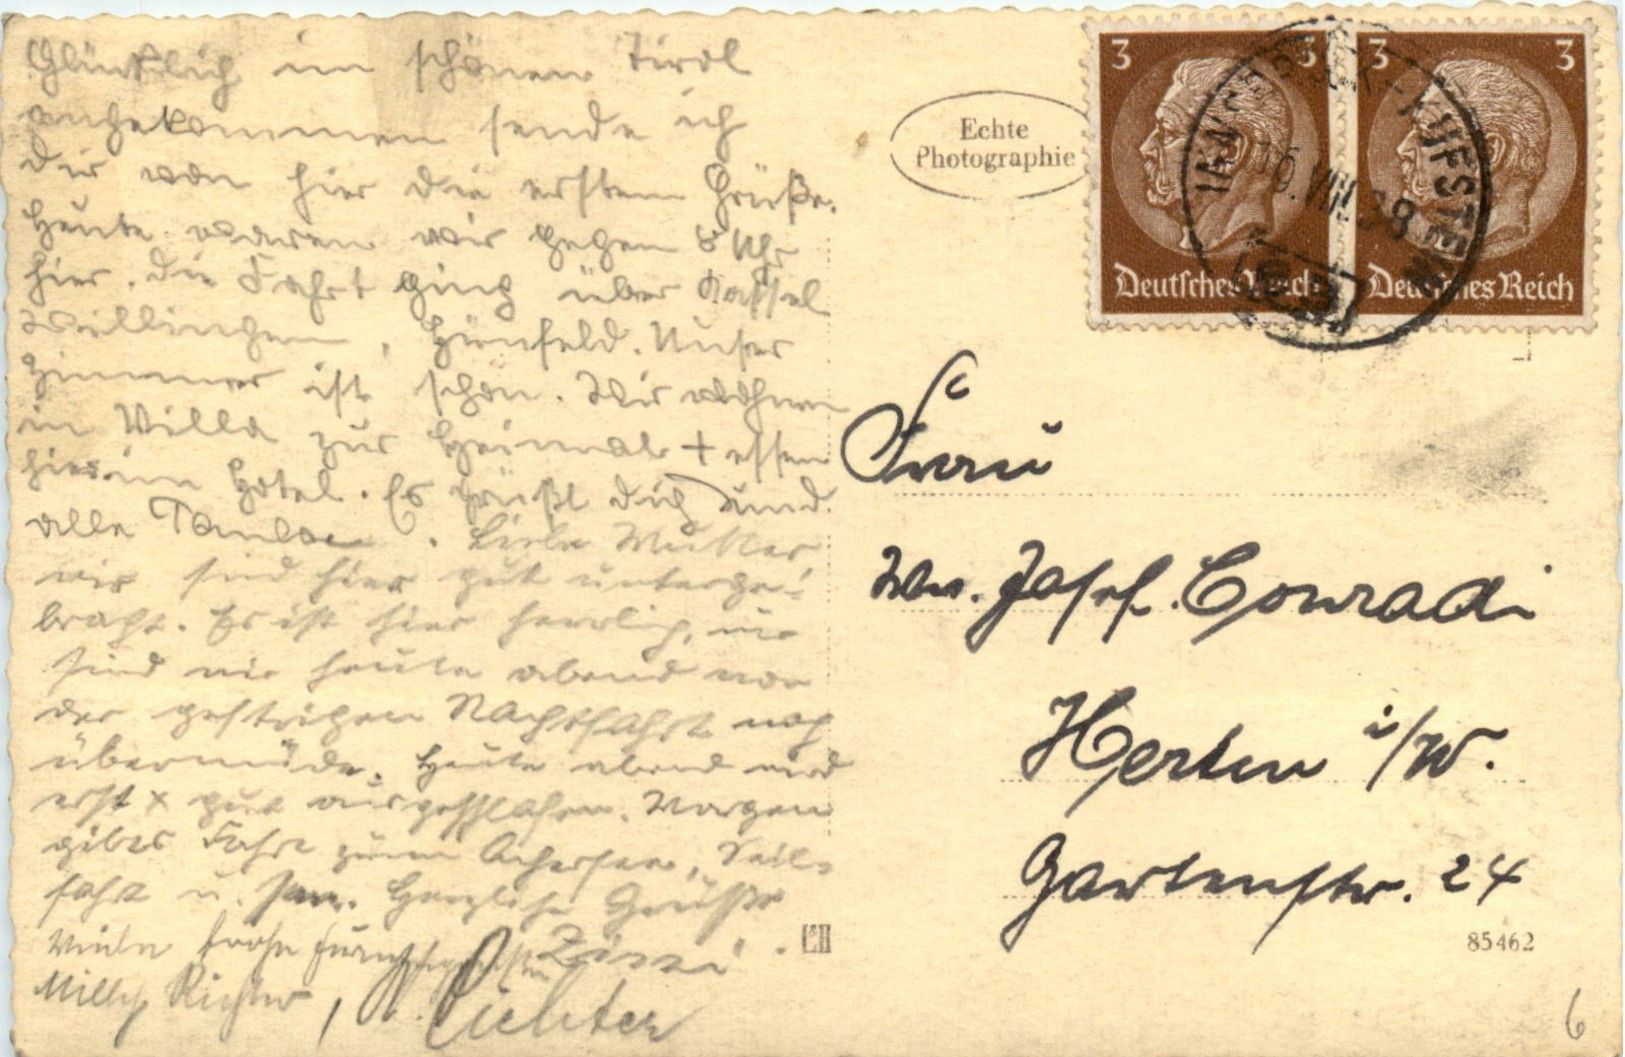 Glücklich im schönen Tirol
angekommen sende ich
dir von hier die ersten Grüße.
Heute waren wir gegen 8 Uhr
hier. Die Fahrt ging über Kassel
Willingen, Hünfeld. Unser
Zimmer ist schön. Wir wohnen
in Villa zur Heimat + essen
hier im Hotel. Es grüßt dich und
alle
Liebe Mutter
wir sind hier gut unterge-
bracht. Es ist hier herrlich, nur
sind wir heute abend von
der gestrigen Nachtfahrt noch
übermüde. Heute abend wird
erst x gut ausgeschlafen. Morgen
gibts Fahrt zum Achensee, Seil-
fahrt u. Herzliche Grüße
Viele frohe
Milly Richter, Richter
Echte
Photographie
3 3 3 3
Deutsches Reich Deutsches Reich
INNSBRUCK-KUFSTEIN
16.VIII.38
Frau
Ww. Josef Conradi
Herten i/W.
Gartenstr. 24
85462
6